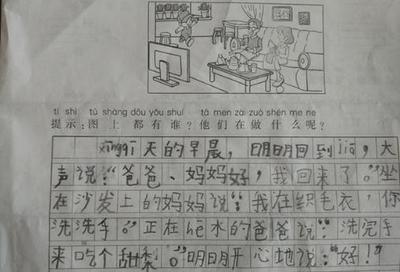 tí shì tú shàng dōu yǒu shuí tā men zài zuò shén me ne
提示:图上都有谁?他们在做什么呢?
xīngqī天的早晨,明明回到jiā,大
声说:“爸爸、妈妈好,我回来了。”坐
在沙发上的妈妈说:“我在织毛衣,你
洗洗手。”正在hē水的爸爸说:“洗完手
来吃个甜梨。”明明开心地说:“好!”